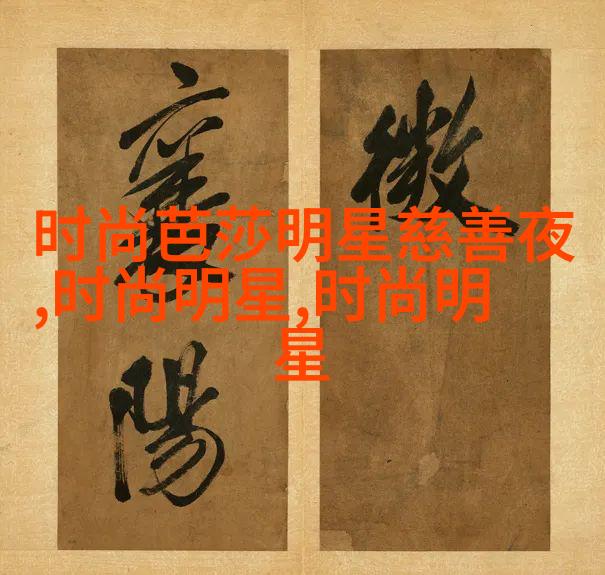 时尚芭莎明星慈善夜
,时尚明星,时尚明
星
微
襄陽